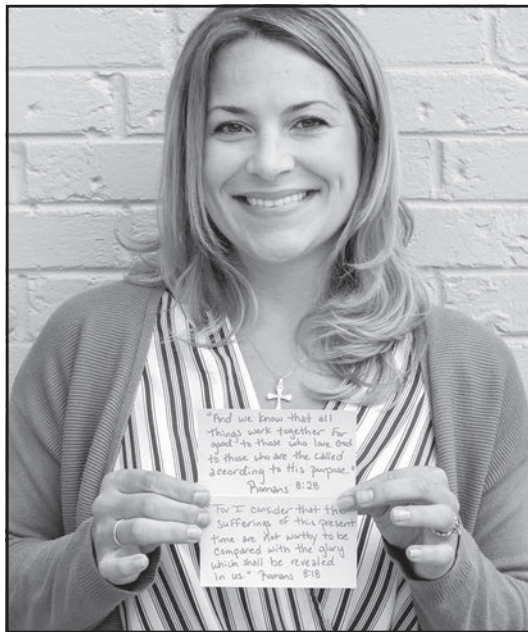 "And we know that all
things work together for
good to those who love God
to those who are the called
according to His purpose."
Romans 8:28
"For I consider that the
sufferings of this present
time are not worthy to be
compared with the glory
which shall be revealed
in us." Romans 8:18